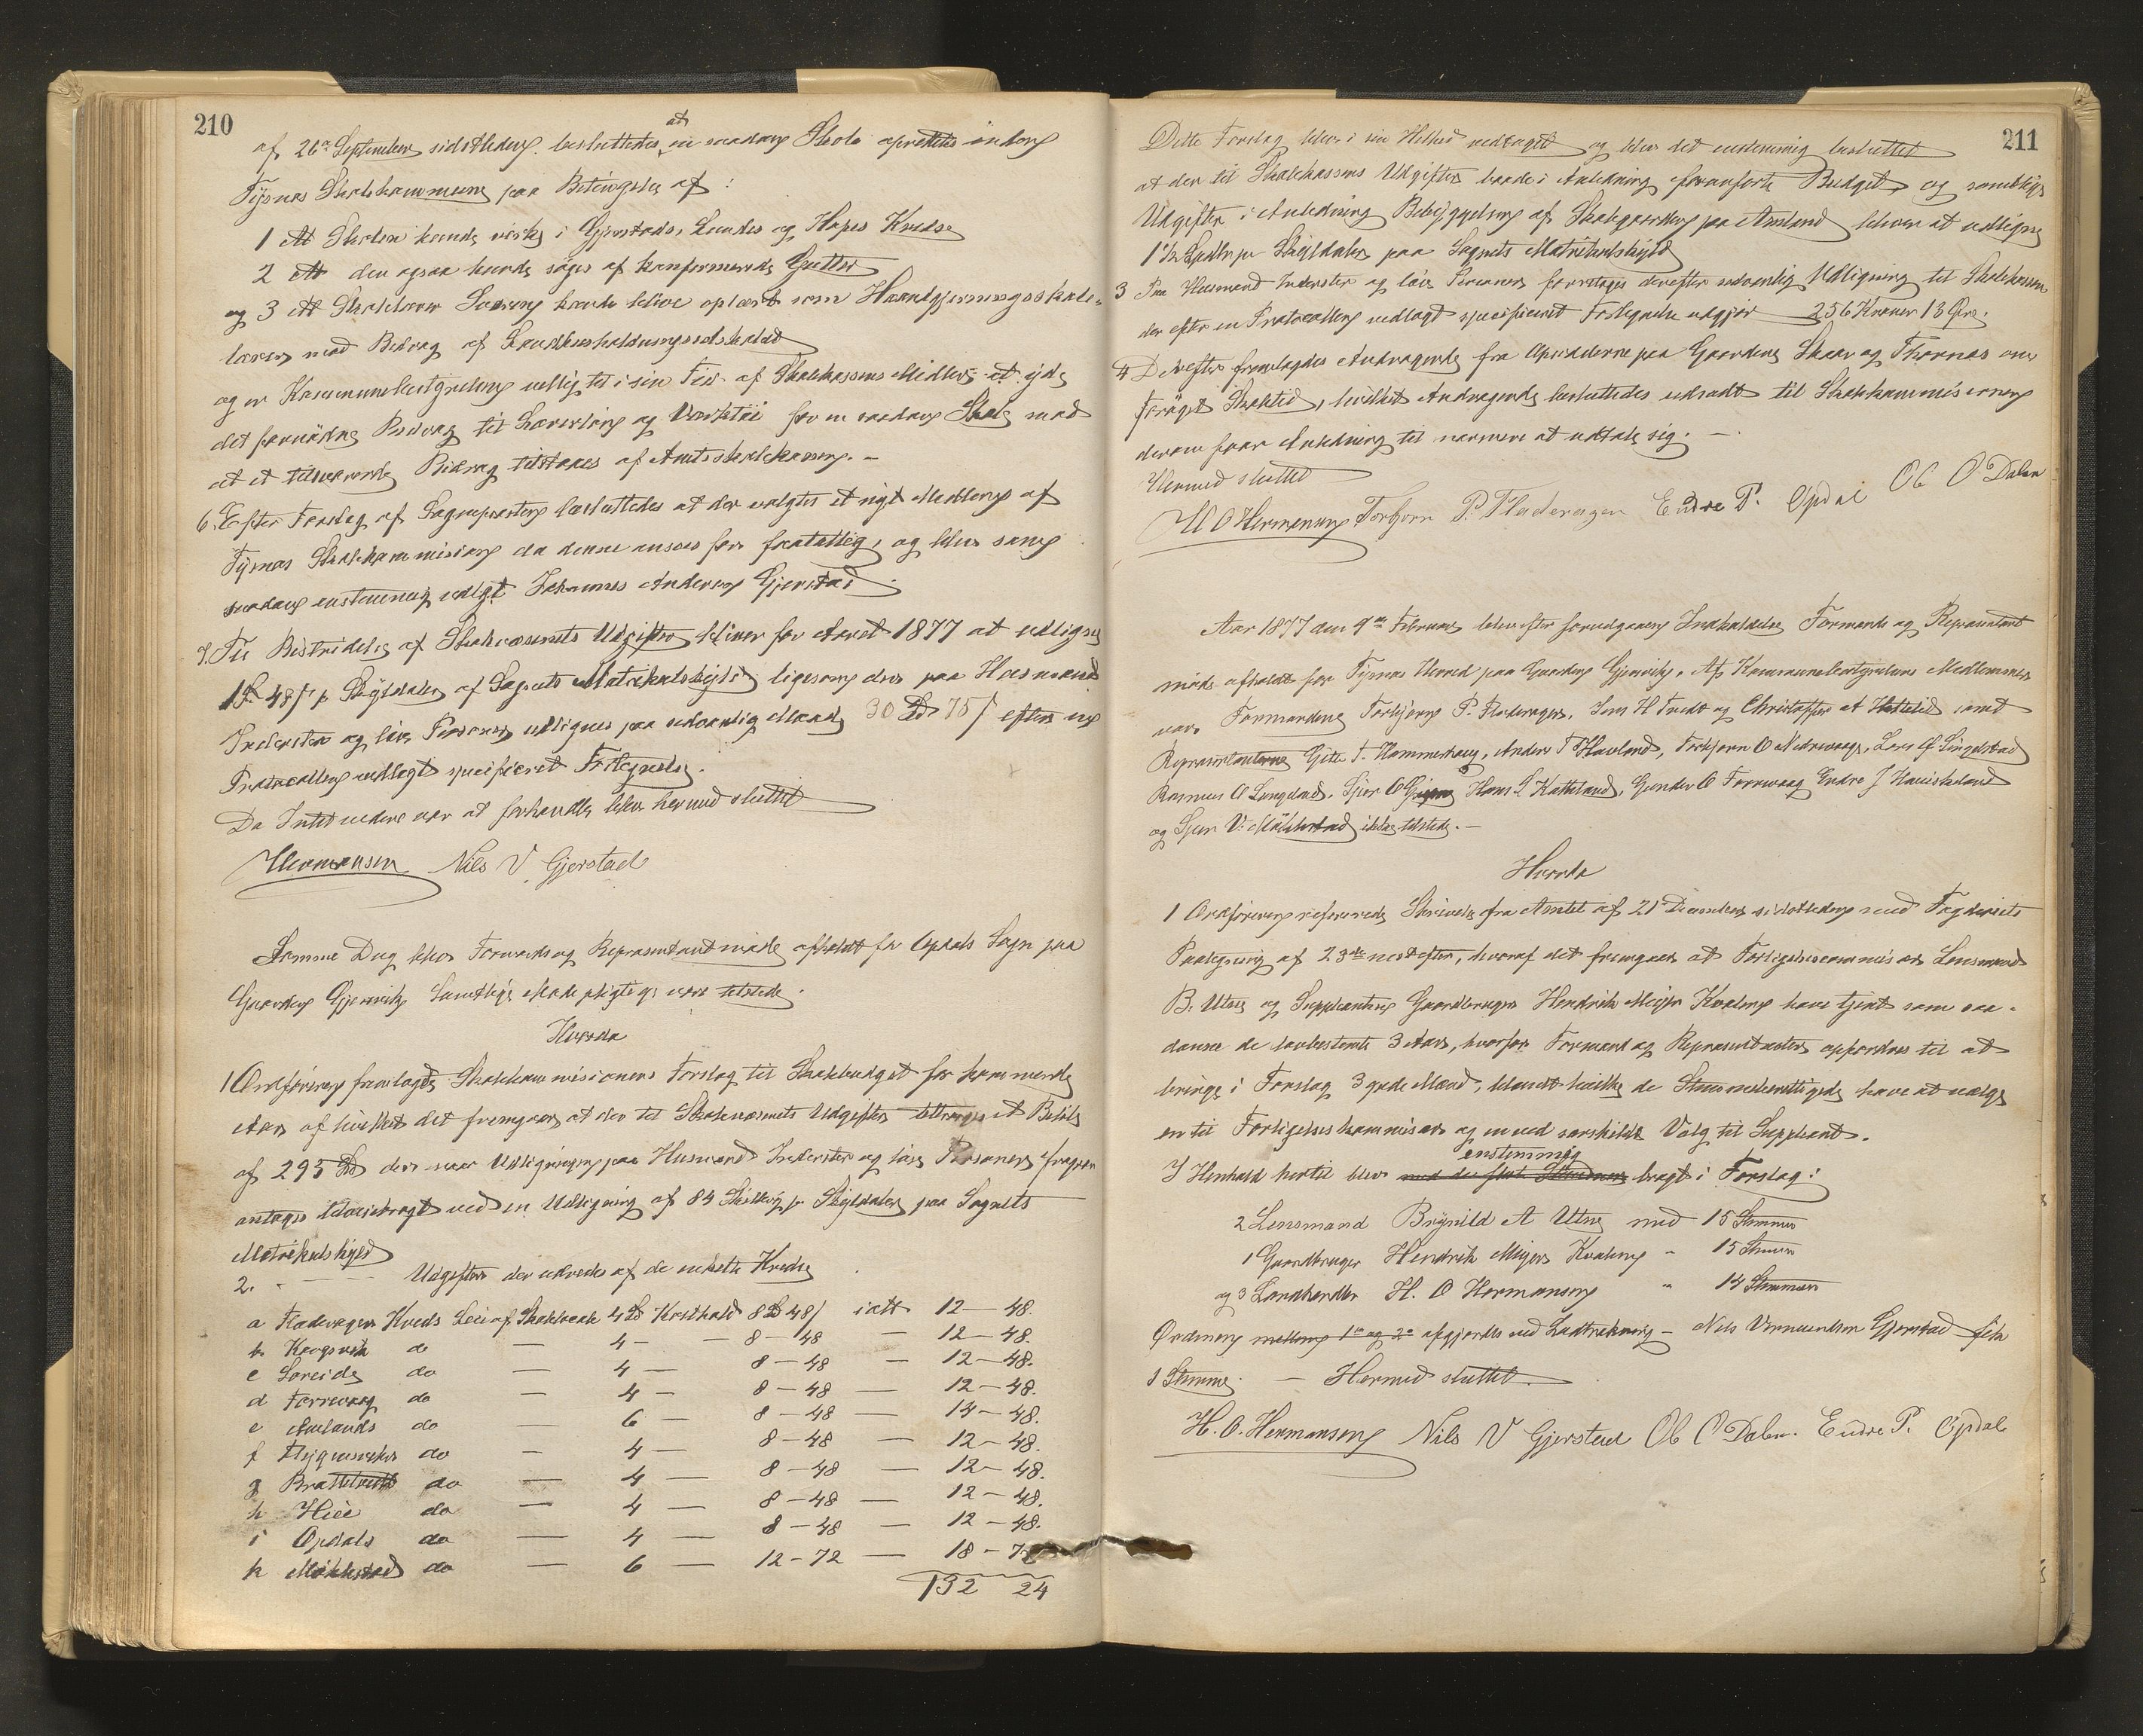 210
af 26de September sidstleden besluttedes, at en saadan Skole oprettes inden
Tysnæs Skolekommune paa Betingelse af:
1 At Skolen kunde virke i Gjerstads, Lunde og Hopes Kredse
2 At den ogsaa kunde søges af konfirmerede Gutter
og 3 At Skolelærer kunde blive oplært som Haandgjerningsskole-
lærer med Bidrag af Landhusholdningsselskabet
og er Kommunebestyrelsen villig til i sin Tid af Skolekassens Midler at yde
det fornødne Bidrag til Lærerløn og Værktøi for en saadan Skole mod
at et tilsvarende Bidrag tilstaaes af Amtsskolekassen. -
6. Efter Forslag af Sogneprasten besluttedes at der valgtes et nyt Medlem af
Tysnæs Skolekommission da denne ansees for faatallig, og blev som
saadan enstemmig valgt Johannes Andersen Gjerstad.
7. Til Bestridelse af Skolevæsenets Udgifter bliver for Aaret 1877 at udligne
48/ pr Skylddaler af Sognets Matrikulskyld ligesom der paa Husmænd
Inderster og løse Personer udlignes paa sedvanlig Maade 30 Spd 75/ efter en
Protocollen vedlagt specificeret Fortegnelse.
Da Intet videre var at forhandle blev hermed sluttet
Hermansen Nils V. Gjerstad
Samme Dag blev Formands og Repræsentantmøde afholdt for Opdals Sogn paa
Gaarden Gjersvik Samtlige Mødepligtige vare tilstede.
Hvorda
1 Ordføreren fremlagde Skolekommissionens Forslag til Skolebudget for kommende
Aar af hvilket det fremgaar at der til Skolevæsenets Udgifter tiltrænges et Beløb
af 295 Spd der naar Udligningen paa Husmænd Inderster og løse Personer fragaar
antages tilveiebragt ved en Udligning af 84 Skilling pr Skylddaler paa Sognets
Matrikulskyld
2. Udgifter der udredes af de enkelte Kredse
a Fladevagen Kreds Leie af Skolelocale 4 Spd Kosthold 8 Spd 48/ ialt 12 — 48.
b Kaagsvik do — 4 — — 8 — 48 — 12 — 48.
c Soreide do — 4 — 8 — 48 — 12 — 48.
d Forrevaag do — 4 — 8 — 48 — 12 — 48.
e Amlands do — 6 — 8 — 48 — 14 — 48.
f do — 4 — 8 — 48 — 12 — 48.
g do — 4 — 8 — 48 — 12 — 48.
h Hiie do — 4 — 8 — 48 — 12 — 48.
i Opdals do — 4 — 8 — 48 — 12 — 48.
k Møklestad do — 6 — 12 — 72 — 18 — 72
132 24
211
Dette Forslag blev i sin Helhed vedtaget og blev det enstemmig besluttet
at der til Skolekassens Udgifter baade i Anledning foranførte Budget og samtlige
Udgifter i Anledning Bebyggelsen af Skolegaarden paa Amland bliver at udligne
1½ Spdlr pr Skylddaler paa Sognets Matrikulskyld
3 Paa Husmænd Inderster og løse Personer foretages derefter sedvanlig Udligning til Skolekassen
der efter en Protocollen vedlagt specificeret Fortegnelse udgjør 256 Kroner 13 Øre.
4 Derefter fremlagdes Andragende fra Opsidderne paa Gaardene Skaar og Thornæs om
forøget Skoletid, hvilket Andragende besluttedes udsadt til Skolekommissionen
derom faar Anledning til nærmere at udtale sig. —
Hermed sluttet
H O Hermansen Torbjørn P. Fladevagen Endre P. Opdal Ol O Dalen
Aar 1877 den 9de Februar blev efter forudgaaen Indkaldelse Formands og Repræsentant
møde afholdt for Tysnæs Herred paa Gaarden Gjersvik. Af Kommunebestyrelsens Medlemmer
vare Formændene Torbjørn P. Fladevagen, Jens H Tvedt og Christoffer A Hatteleid samt
Repræsentanterne Gitle T. Hammerhaug, Anders T Havland, Torbjørn O Nedrevaage, Lars
Rasmus O Langeland. Sjur O Hans L Katteland, Gunder O Forrevaag Endre J
og Sjur V. Møklestad ikke tilstede. —
Hvorda
1 Ordføreren refererede Skrivelse fra Amtet af 21 December sidstleden med Fogderiets
Paategning af 23de næstefter, hvoraf det fremgaar at Forligelsescommissær Lensmand
B. Utne og Supplanten Gaardbruger Hendrik Meyer Kvalen have tjent som saa-
danne de lovbestemte 3 Aar, hvorfor Formænd og Repræsentanter opfordres til at
bringe i Forslag 3 gode Mænd, blandt hvilke de Stemmeberettigede have at vælge
en til Forligelseskommissær og en ved særskildt Valg til Supplant.
I Henhold hertil blev med de fleste Stemmer enstemmig bragt i Forslag:
2 Lensmand Brynild A Utne med 15 Stemmer
1 Gaardbruger Hendrik Meyer Kvalen " 15 Stemmer
og 3 Landhandler H. O Hermansen " 14 Stemmer
Ordenen mellem 1ste og 2de afgjordes ved Lodtrækning — Nils Gjerstad fik
1 Stemme. — Hermed sluttet.
H. O. Hermansen Nils V Gjerstad Ol O Dalen. Endre P. Opdal